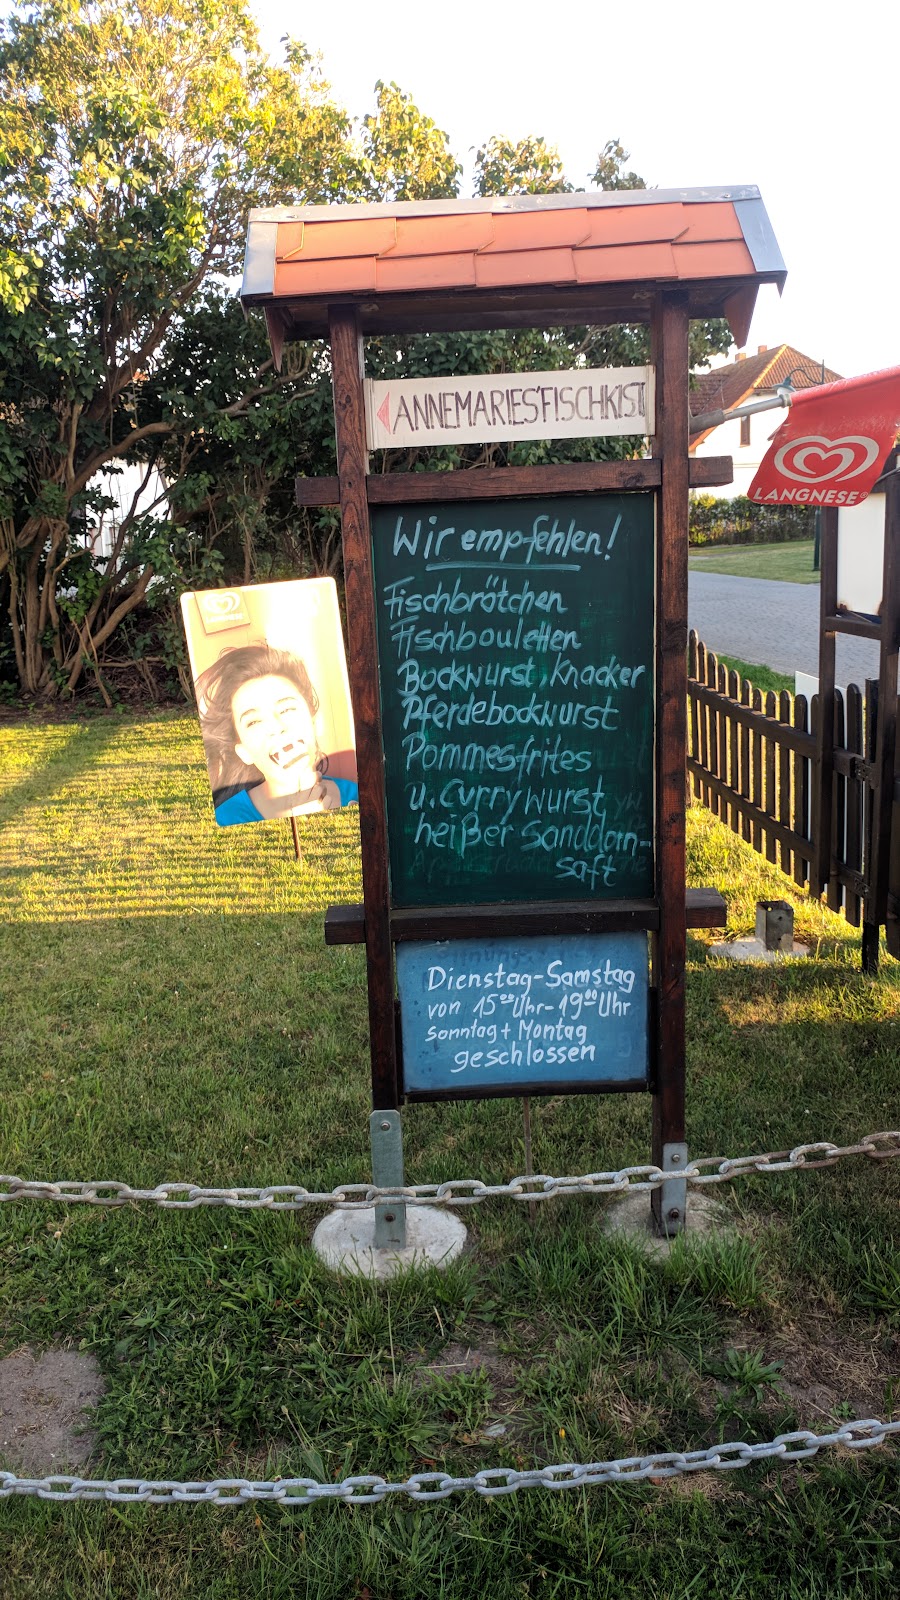 ANNEMARIES'FISCHKIST
LANGNESE
Wir empfehlen!
Fischbrötchen
Fischbouletten
Bockwurst, Knacker
Pferdebockwurst
Pommesfrites
u. Currywurst
heißer Sanddorn-
saft
Dienstag-Samstag
von 15⁰⁰Uhr-19⁰⁰Uhr
sonntag + Montag
geschlossen